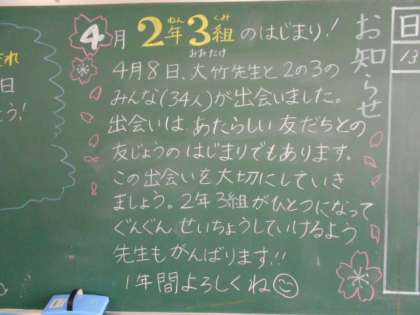 お知らせ
4月 2年3組のはじまり!
ねん くみ
おおたけ
4月8日、大竹先生と2の3の
みんな(34人)が出会いました。
出会いは あたらしい 友だちとの
友じょうの はじまりでもあります。
この出会いを大切にしていき
ましょう。2年3組がひとつになって
ぐんぐん せいちょうしていけるよう
先生もがんばります!!
1年間よろしくね
日
13
日
う!